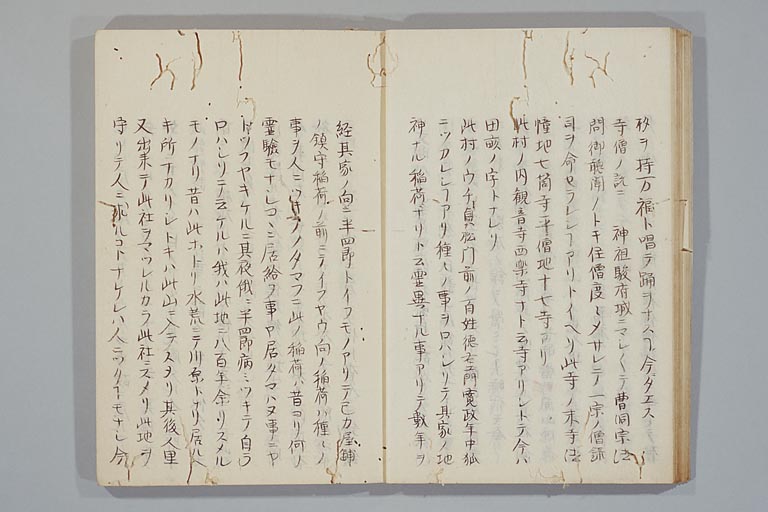 杉ヲ持万福ト唱テ踊ヲナヘハ今ダエス
寺僧ノ説ニ 神祖駿府城ニマシ〱テ曹洞宗法
問御聴聞ノトキ住僧度〻メサレテ一宗ノ僧録
司ヲ命セラレシヿアリトイヘリ此寺ノ末寺法
幢地七箇寺平僧地十七寺アリ
此村ノ内観音寺西楽寺ナト云寺アリシトテ今ハ
田畝ノ字トナレリ
此村ノウチ真 門前ノ百姓徳右衛門寛政年中狐
ニツカレシヿアリ種〻ノ事ヲ口ハシリテ其家ノ地
神ナル稲荷ナリト云霊異ナル事アリテ数年ヲ
経其家ノ向ニ半四郎トイフモノアリテ己カ屋舗
ノ鎮守稲荷ノ前ニテイフヤウ向ノ稲荷ハ種〻ノ
事ヲ人ニツキテノタマフニ此ノ稲荷ハ昔ヨリ何ノ
霊験モナシコヽニ居給フ事ヤ居タマハヌ事ニヤ
トツフヤキケルニ其夜俄ニ半四郎病ミツキテ自ラ
口ハシリテ云ケルハ我ハ此地ニ八百年余リスメル
モノナリ昔ハ此ホトリ水荒ニテ川原トナリ居ルヘ
キ所ナカリシトキハ此山ニ入テスメリ其後人里
又出来テ此社ヲマツレルカラ此社ニスメリ此地ヲ
守リテ人ニ ルコトナケレハ人ニツクヿモナシ今